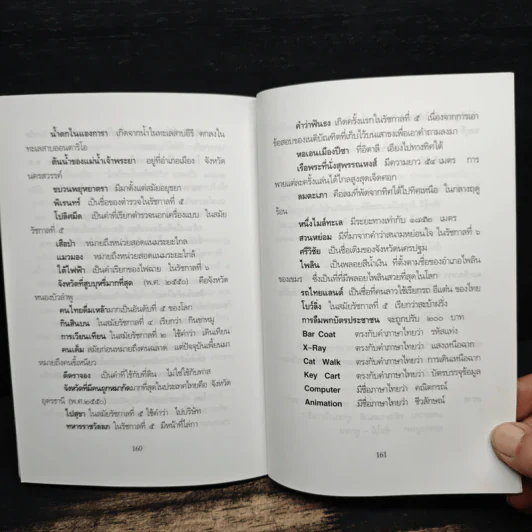 น้ำตกไนแองการา เกิดจากน้ำในทะเลสาบอีรี ตกลงใน
ทะเลสาบออนตาริโอ
ต้นน้ำของแม่น้ำเจ้าพระยา อยู่ที่อำเภอเมือง จังหวัด
นครสวรรค์
ขบวนพยุหยาตรา มีมาตั้งแต่สมัยอยุธยา
พิเรนทร์ เป็นชื่อของตำรวจในรัชกาลที่ ๕
โปลิศมืด เป็นคำที่เรียกตำรวจนอกเครื่องแบบ ในสมัย
รัชกาลที่ ๕
เสือป่า หมายถึงหน่วยสอดแนมระยะไกล
แมวมอง หมายถึงหน่วยสอดแนมระยะใกล้
ไต้ไฟฟ้า เป็นคำเรียกของไฟฉาย ในรัชกาลที่ ๖
จังหวัดที่สูบบุหรี่มากที่สุด (พ.ศ. ๒๕๕๐) คือจังหวัด
หนองบัวลำพู
คนไทยดื่มเหล้ามากเป็นอันดับที่ ๕ ของโลก
กินสินบน ในสมัยรัชกาลที่ ๔ เรียกว่า กินขาหมู
การเวียนเทียน ในสมัยรัชกาลที่ ๒ ใช้คำว่า เดินเทียน
คนเค็ม สมัยก่อนหมายถึงคนฉลาด แต่ปัจจุบันเพี้ยนมา
หมายถึงคนขี้เหนียว
ตีตราจอง เป็นคำที่ใช้กับที่ดิน ไม่ใช้กับทาส
จังหวัดที่มีคนถูกหมากัดมากที่สุดในประเทศไทยคือ จังหวัด
อุดรธานี (พ.ศ.๒๕๕๐)
ไปสุขา ในสมัยรัชกาลที่ ๕ ใช้คำว่า ไปบริษัท
ทหารราชวัลลภ ในรัชกาลที่ ๕ มีหน้าที่ไล่กา
160
คำว่าฟันธง เกิดครั้งแรกในรัชกาลที่ ๕ เนื่องจากการเอา
ข้อสอบของเนติบัณฑิตที่เก็บไว้บนเสาธงเพื่อเอาคำถามลงมา
หอเอนเมืองปิซา ที่อิตาลี เอียงไปทางทิศใต้
เรือพระที่นั่งสุพรรณหงส์ มีความยาว ๔๕ เมตร การ
พายแต่ละครั้งแล่นได้ไกลสูงสุดเจ็ดศอก
ลมตะเภา คือลมที่พัดจากทิศใต้ไปทิศเหนือ ในกลางฤดู
ร้อน
หนึ่งไมล์ทะเล มีระยะทางเท่ากับ ๑๘๕๒ เมตร
สวนหย่อม มีที่มาจากคำว่าสนามหย่อนใจ ในรัชกาลที่ ๖
ศรีวิชัย เป็นชื่อเดิมของจังหวัดนครปฐม
ไพลิน เป็นพลอยสีน้ำเงิน ที่ตั้งตามชื่อของอำเภอไพลิน
ของเขมร ซึ่งเป็นที่ที่มีพลอยไพลินสวยที่สุดในโลก
รถไทยแลนด์ เป็นชื่อที่คนลาวใช้เรียกรถ อีแต๋น ของไทย
โบว์ลิ่ง ในสมัยรัชกาลที่ ๕ เรียกว่าสะบ้าฝรั่ง
การลืมพกบัตรประชาชน จะถูกปรับ ๒๐๐ บาท
Bar Coat ตรงกับคำภาษาไทยว่า รหัสแท่ง
X-Ray ตรงกับคำภาษาไทยว่า แสงเหนือฉาก
Cat Walk ตรงกับคำภาษาไทยว่า การเดินเหนือฉาก
Key Cart ตรงกับคำภาษาไทยว่า บัตรบรรจุข้อมูล
Computer มีชื่อภาษาไทยว่า คณิตกรณ์
Animation มีชื่อภาษาไทยว่า ชีวลักษณ์
161